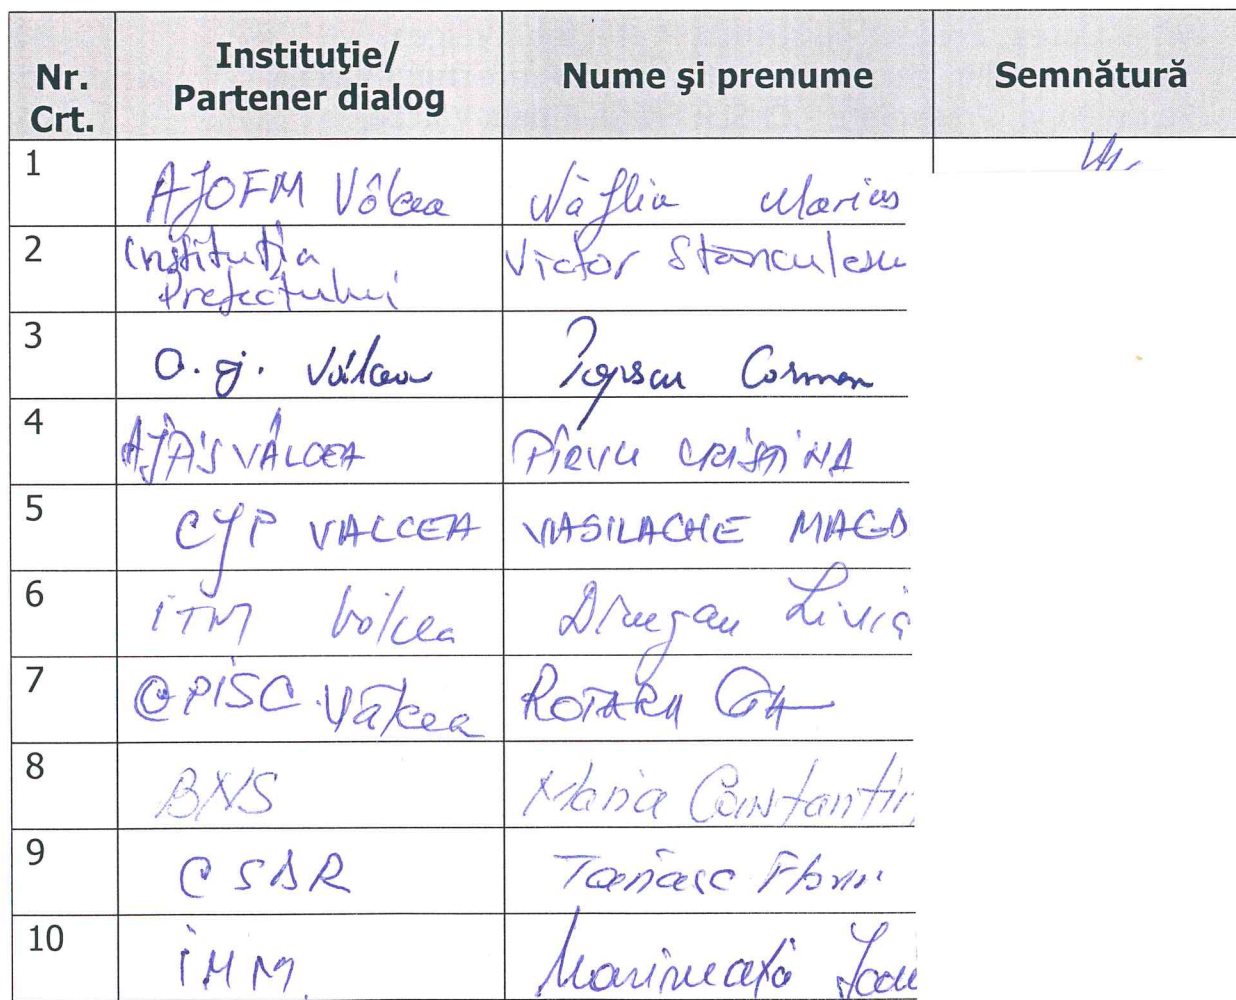 Nr. Crt. Instituţie/ Partener dialog Nume şi prenume Semnătură
1 AJOFM Vâlcea Marius
2 Instituția Prefectului Victor Stanculescu
3 O.J. Vâlcea Popescu Carmen
4 AJPIS VÂLCEA Pîrvu CRISTINA
5 CJP VALCEA VASILACHE MAGD
6 ITM Vâlcea Livia
7 Vâlcea ROTARU
8 BNS Maria Constantin
9 CSDR Tanase Florin
10 IMM